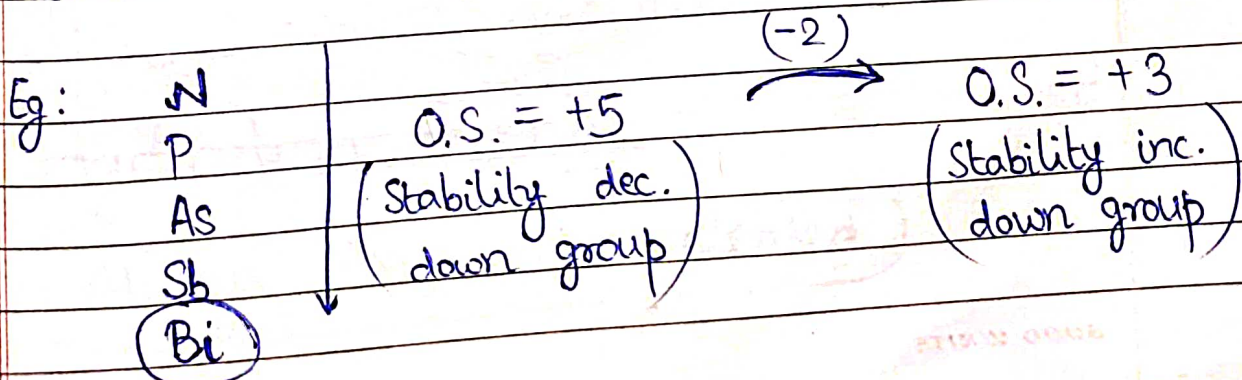 Eg: N
P
As
Sb
Bi
O.S. = +5
(Stability dec.
down group)
(-2)
O.S. = +3
(Stability inc.
down group)